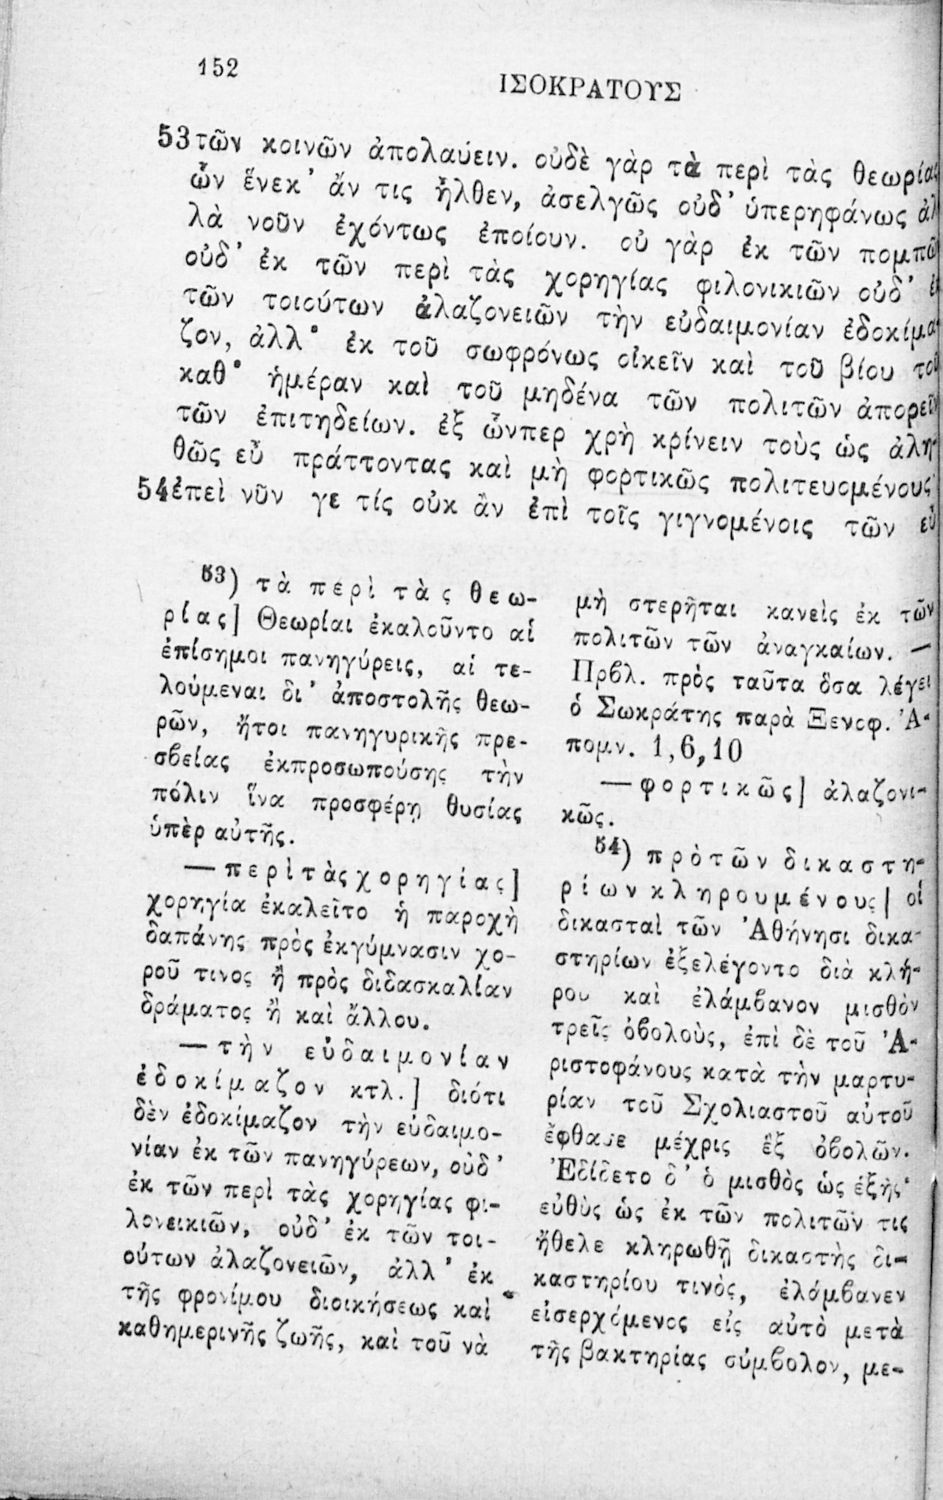 152
ΙΣΟΚΡΑΤΟΥΣ
53 τῶν κοινῶν ἀπολαύειν. οὐδὲ γὰρ τὰ περὶ τὰς θεωρίας
ὧν ἕνεκ’ ἄν τις ἦλθεν, ἀσελγῶς οὐδ’ ὑπερηφάνως ἀλ
λὰ νοῦν ἐχόντως ἐποίουν. οὐ γὰρ ἐκ τῶν πομπῶ
οὐδ’ ἐκ τῶν περὶ τὰς χορηγίας φιλονικιῶν οὐδ’ ἐκ
τῶν τοιούτων ἀλαζονειῶν τὴν εὐδαιμονίαν ἐδοκίμα
ζον, ἀλλ’ ἐκ τοῦ σωφρόνως οἰκεῖν καὶ τοῦ βίου τοῦ
καθ’ ἡμέραν καὶ τοῦ μηδένα τῶν πολιτῶν ἀπορεῖν
τῶν ἐπιτηδείων. ἐξ ὧνπερ χρὴ κρίνειν τοὺς ὡς ἀλη-
θῶς εὖ πράττοντας καὶ μὴ φορτικῶς πολιτευομένους·
54 ἐπεὶ νῦν γε τίς οὐκ ἂν ἐπὶ τοῖς γιγνομένοις τῶν εὖ
53) τὰ περὶ τὰς θεω-
ρίας] Θεωρίαι ἐκαλοῦντο αἱ
ἐπίσημοι πανηγύρεις, αἱ τε-
λούμεναι δι’ ἀποστολῆς θεω-
ρῶν, ἤτοι πανηγυρικῆς πρε-
σβείας ἐκπροσωπούσης τὴν
πόλιν ἵνα προσφέρῃ θυσίας
ὑπὲρ αὐτῆς.
— περὶ τὰς χορηγίας]
χορηγία ἐκαλεῖτο ἡ παροχὴ
δαπάνης πρὸς ἐκγύμνασιν χο-
ροῦ τινος ἢ πρὸς διδασκαλίαν
δράματος ἢ καὶ ἄλλου.
— τὴν εὐδαιμονίαν
ἐδοκίμαζον κτλ.] διότι
δὲν ἐδοκίμαζον τὴν εὐδαιμο-
νίαν ἐκ τῶν πανηγύρεων, οὐδ’
ἐκ τῶν περὶ τὰς χορηγίας φι-
λονεικιῶν, οὐδ’ ἐκ τῶν τοι-
ούτων ἀλαζονειῶν, ἀλλ’ ἐκ
τῆς φρονίμου διοικήσεως καὶ
καθημερινῆς ζωῆς, καὶ τοῦ νὰ
μὴ στερῆται κανεὶς ἐκ τῶν
πολιτῶν τῶν ἀναγκαίων. —
Πρβλ. πρὸς ταῦτα ὅσα λέγει
ὁ Σωκράτης παρὰ Ξενοφ. Ἀ-
πομν. 1,6,10
— φορτικῶς] ἀλαζονι-
κῶς.
54) πρὸ τῶν δικαστη-
ρίων κληρουμένους] οἱ
δικασταὶ τῶν Ἀθήνησι δικα-
στηρίων ἐξελέγοντο διὰ κλή-
ρου καὶ ἐλάμβανον μισθὸν
τρεῖς ὀβολοὺς, ἐπὶ δὲ τοῦ Ἀ-
ριστοφάνους κατὰ τὴν μαρτυ-
ρίαν τοῦ Σχολιαστοῦ αὐτοῦ
ἔφθασε μέχρις ἓξ ὀβολῶν.
Ἐδίδετο δ’ ὁ μισθὸς ὡς ἑξῆς·
εὐθὺς ὡς ἐκ τῶν πολιτῶν τις
ἤθελε κληρωθῆ δικαστὴς δι-
καστηρίου τινὸς, ἐλάμβανεν
εἰσερχόμενος εἰς αὐτὸ μετὰ
τῆς βακτηρίας σύμβολον, με-